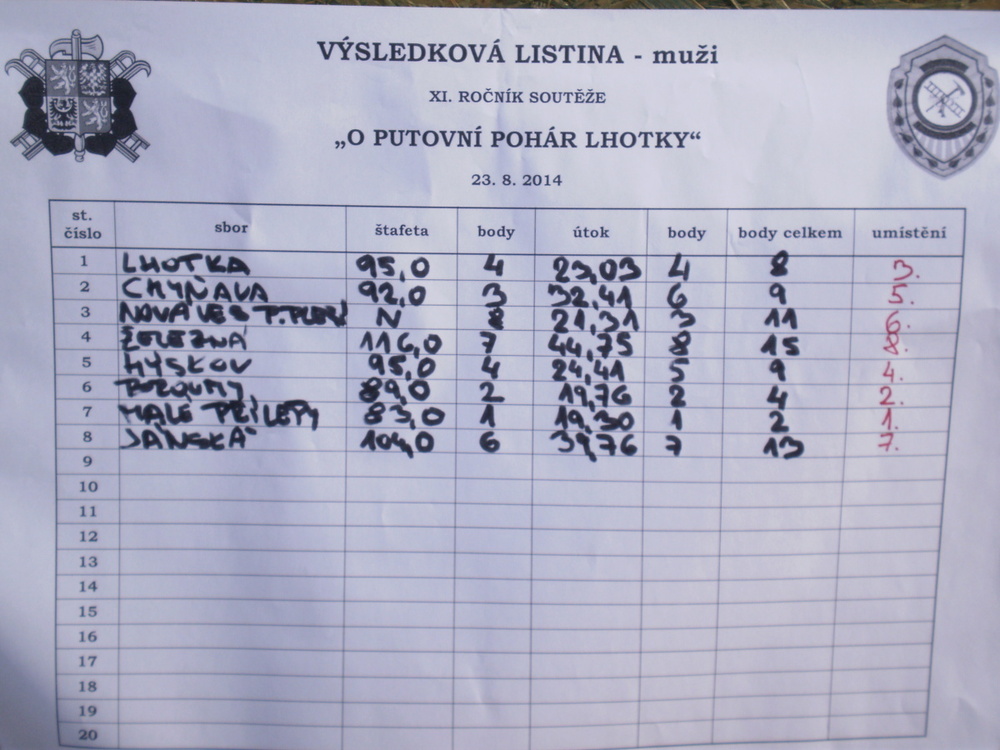 VÝSLEDKOVÁ LISTINA - muži
XI. ROČNÍK SOUTĚŽE
„O PUTOVNÍ POHÁR LHOTKY“
23. 8. 2014
st. číslo sbor štafeta body útok body body celkem umístění
1 LHOTKA 95,0 4 23,03 4 8 3.
2 CHYŇAVA 92,0 3 32,41 6 9 5.
3 NOVÁ VES P.PLEŠÍ N 8 21,31 3 11 6.
4 ŽELEZNÁ 116,0 7 44,75 8 15 8.
5 HÝSKOV 95,0 4 24,41 5 9 4.
6 89,0 2 19,76 2 4 2.
7 MALÉ PŘÍLEPY 83,0 1 19,30 1 2 1.
8 JÁNSKÁ 104,0 6 39,76 7 13 7.
9
10
11
12
13
14
15
16
17
18
19
20